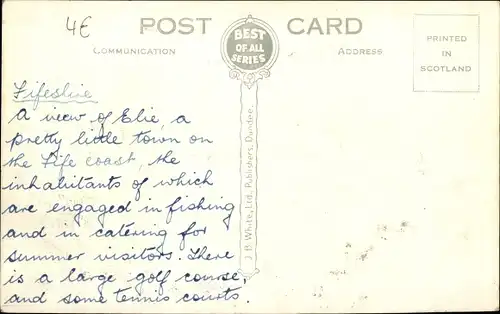 4€
POST CARD
BEST
OF ALL
SERIES
COMMUNICATION
ADDRESS
PRINTED
IN
SCOTLAND
Fifeshire
A view of Elie, a
pretty little town on
the Fife coast, the
inhabitants of which
are engaged in fishing
and in catering for
summer visitors. There
is a large golf course,
and some tennis courts.
J. B. White, Ltd., Publishers, Dundee.